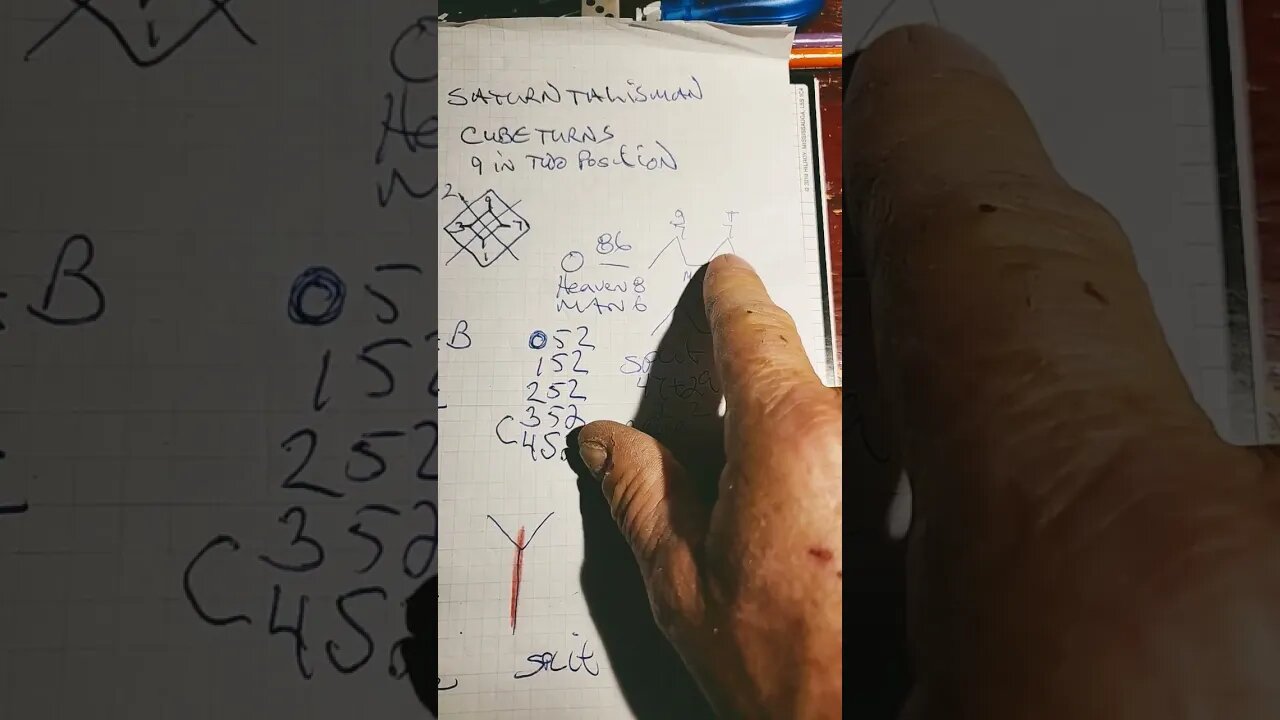 SATURN TALISMAN
CUBE TURNS
9 IN TWO POSITION
2
9
3 7
1
86
Heaven 8
MAN 6
9
B
052
152
252
352
C 45
split
47+29
split